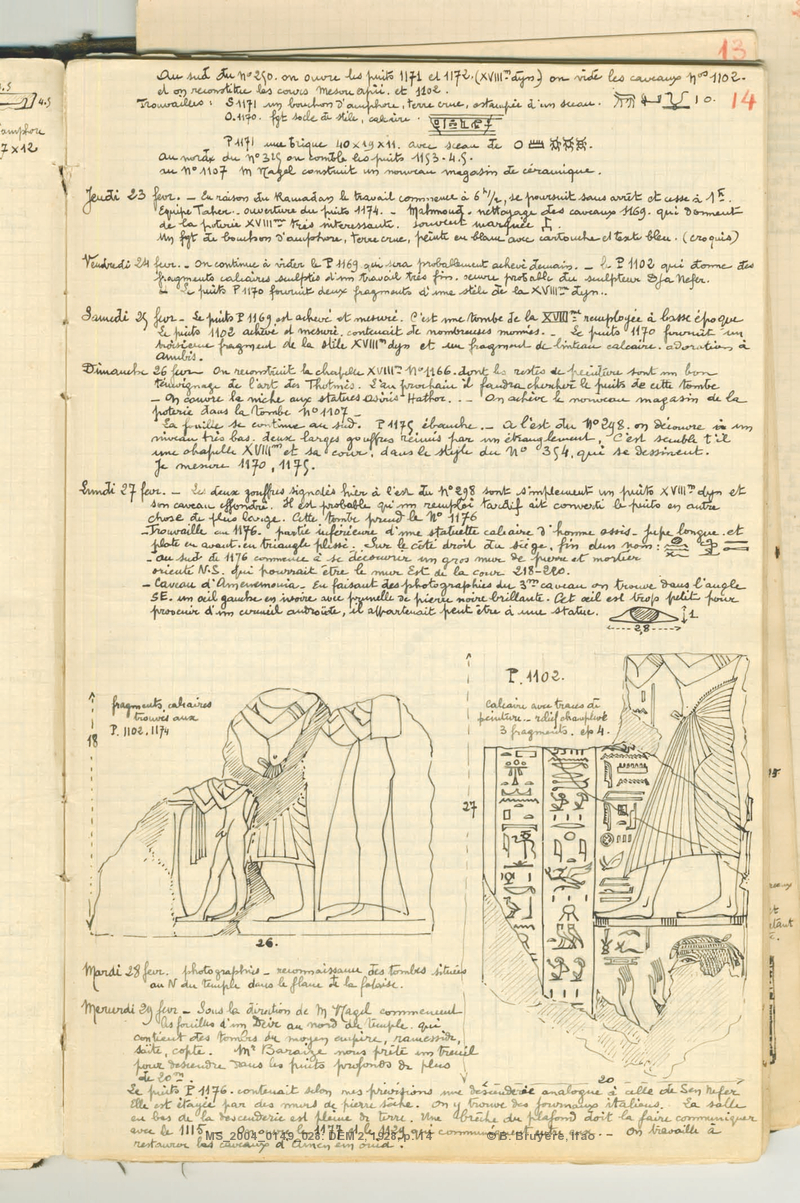 13
14
Au sud du N° 250. on ouvre les puits 1171 et 1172. (XVIIIme dyn.) on vide les caveaux Nos 1102.
et on reconstitue les cours et 1102.
Trouvailles : S 1171 un bouchon d'amphore, terre crue, estampée d'un sceau. 10.
O. 1170. fgt socle de stèle, calcaire.
P 1171 une brique 40 x 19 x 11. avec sceau de
au nord du N° 325 on comble les puits 1153. 4. 5.
au N° 1107 M Nagel construit un nouveau magasin de céramique.
Jeudi 23 fevr. — En raison du Ramadan le travail commence à 6 h/2, se poursuit sans arrêt et cesse à 1 h.
Equipe Taher. ouverture du puits 1174. — Mahmoud. nettoyage des caveaux 1169. qui donnent
de la poterie XVIIIme très interessante. souvent marquée
Un fgt de bouchon d'amphore, terre crue, peinte en blanc avec cartouche et texte bleu. (croquis)
Vendredi 24 fevr. — On continue à vider le P 1169 qui sera probablement achevé demain. — le P 1102 qui donne des
fragments calcaires sculptés d'un travail très fin. oeuvre probable du sculpteur Dja Nefer.
Le puits P 1170 fournit deux fragments d'une stèle de la XVIIIme dyn..
Samedi 25 fevr — Le puits P 1169 est achevé et mesuré. C'est une tombe de la XVIIIme remployée à basse époque
Le puits 1102 achevé et mesuré. contenait de nombreuses momies. — Le puits 1170 fournit un
troisième fragment de la stèle XVIIIme dyn et un fragment de linteau calcaire. adoration à
Anubis.
Dimanche 26 fevr — On reconstruit la chapelle XVIIIme N° 1166. dont les restes de peinture sont un bon
témoignage de l'art des Thotmès. L'an prochain il faudra chercher le puits de cette tombe
— On couvre la niche aux statues Osiris Hathor. .. — On achève le nouveau magasin de la
poterie dans la tombe N° 1107 —
La fouille se continue au sud. P 1175 ébauche. — A l'est du N° 298. on découvre à un
niveau très bas. deux larges gouffres réunis par un étranglement. C'est semble t'il
une chapelle XVIIIme et sa cour, dans le style du N° 354, qui se dessinent.
Je mesure 1170, 1175.
Lundi 27 fevr. — Les deux gouffres signalés hier à l'est du N° 298 sont simplement un puits XVIIIme dyn et
son caveau effondré. Il est probable qu'un remploi tardif ait converti le puits en autre
chose de plus large. Cette tombe prend le N° 1176
— Trouvaille au 1176. partie inférieure d'une statuette calcaire d'homme assis. jupe longue et
plate en avant. en triangle plissé. Sur le côté droit du siège, fin d'un nom:
— au sud de 1176 commence à se découvrir un gros mur de pierre et mortier
orienté N.S. qui pourrait être le mur Est de la cour 218-220.
— Caveau d'Amenemonia. En faisant des photographies du 3me caveau on trouve dans l'angle
SE. un oeil gauche en ivoire avec prunelle de pierre noire brillante. Cet oeil est trop petit pour
provenir d'un cercueil anthroïde, il appartenait peut être à une statue.
1
2,8
fragments calcaires
trouvés aux
P. 1102, 1174
18
26.
P. 1102.
Calcaire avec traces de
peinture. — relief champlevé
3 fragments. ep 4.
27
20
Mardi 28 fevr. photographies — reconnaissance des tombes situées
au N du temple dans le flanc de la falaise.
Mercredi 29 fevr — Sous la direction de M Nagel commencent
les fouilles d'un Deir au nord du temple. qui
contient des tombes du moyen empire, ramesside,
saïte, copte. Mr Baraize nous prête un treuil
pour descendre dans les puits profonds de plus
de 20m.
Le puits P 1176. contenait selon mes prévisions une descenderie analogue à celle de Sen Nefer
Elle est étayée par des murs de pierre sèche. On y trouve des journaux italiens. La salle
en bas de la descenderie est pleine de terre. Une brèche du plafond doit la faire communiquer
avec le 1115. On ouvre le 1177 et le 1129 qui communiquent entre eux. — On travaille à
restaurer les caveaux d'Amen em ouia.
MS_2004_0149_028. DEM 2, 1928, p. 14 © B. Bruyère, Ifao